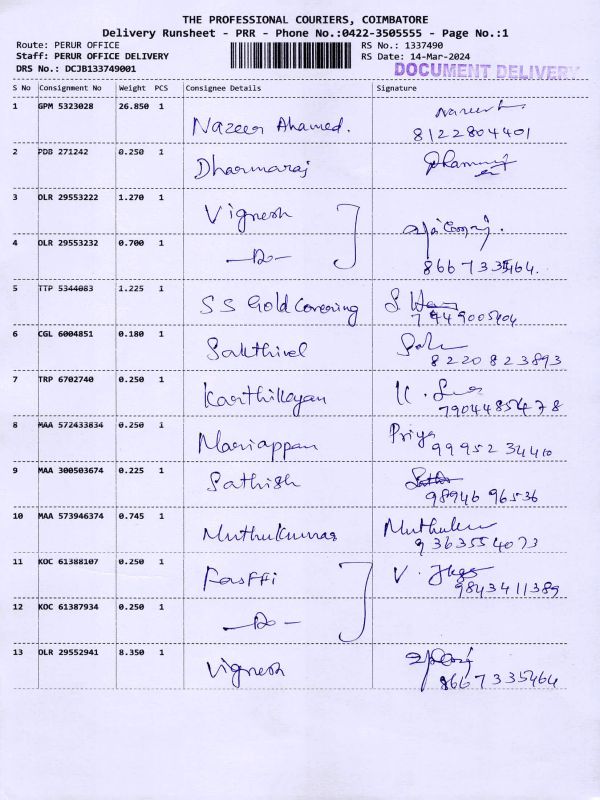 THE PROFESSIONAL COURIERS, COIMBATORE
Delivery Runsheet - PRR - Phone No.:0422-3505555 - Page No.:1
Route: PERUR OFFICE RS No.: 1337490
Staff: PERUR OFFICE DELIVERY RS Date: 14-Mar-2024
DRS No.: DCJB133749001 DOCUMENT DELIVERY
S No Consignment No Weight PCS Consignee Details Signature
1 GPM 5323028 26.850 1 Nazeer Ahamed.
8122804401
2 PDB 271242 0.250 1 Dharmaraj
3 OLR 29553222 1.270 1 Vignesh
4 OLR 29553232 0.700 1 —Do—
5 TTP 5344083 1.225 1 SS Gold Covering
6 CGL 6004851 0.180 1 Sakthivel
8220823893
7 TRP 6702740 0.250 1 Karthikeyan
7904485478
8 MAA 572433834 0.250 1 Mariappan Priya
99952 34410
9 MAA 300503674 0.225 1 Sathish
98946 96536
10 MAA 573946374 0.745 1 Muthukumar
9363554073
11 KOC 61388107 0.250 1
9843411389
12 KOC 61387934 0.250 1 —Do—
13 OLR 29552941 8.350 1 Vignesh
8667335464